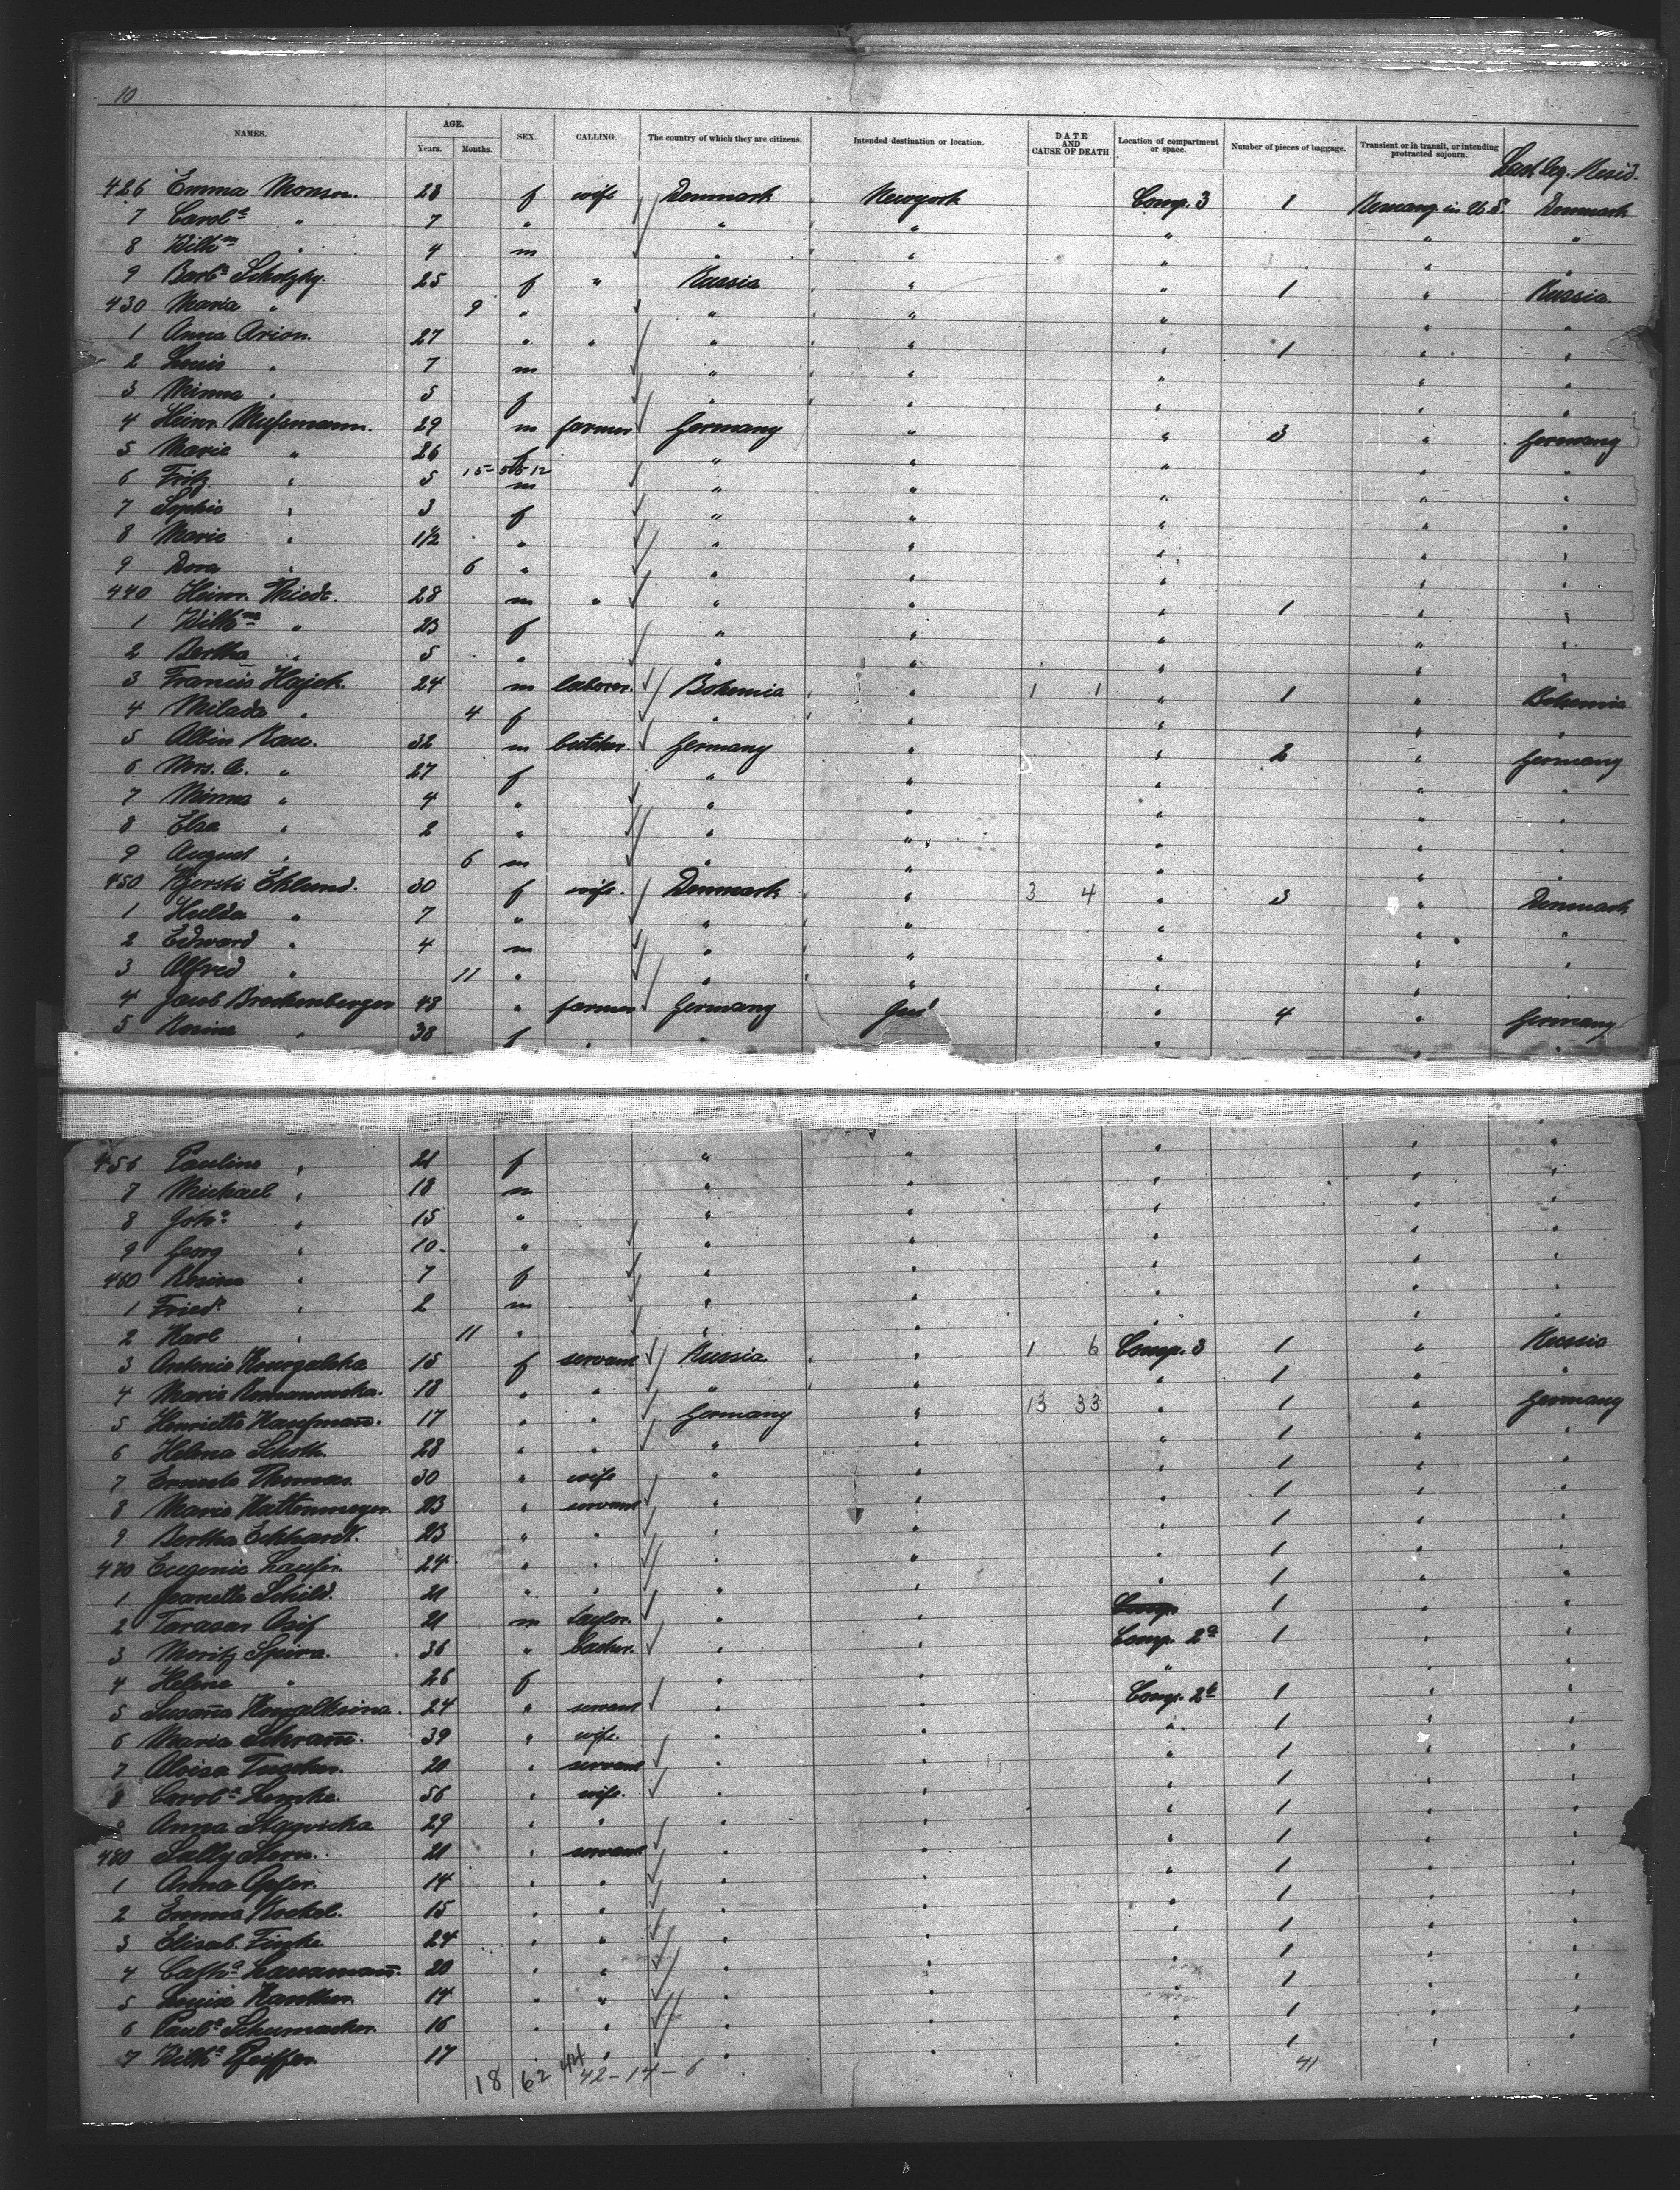 10
NAMES. AGE. Years. Months. SEX. CALLING. The country of which they are citizens. Intended destination or location. DATE AND CAUSE OF DEATH Location of compartment or space. Number of pieces of baggage. Transient or in transit, or intending protracted sojourn. Last leg. Resid.
426 Emma Monson. 28 f wife Denmark Newyork Comp. 3 1 in U.S. Denmark
7 Carole " 7 " " " " " "
8 Wilhm " 4 m " " " " "
9 Barba 25 f " Russia " " 1 " Russia
430 Maria " 9 " " " " " "
1 Anna Arion. 27 " " " " " 1 " "
2 Louis " 7 m " " " " "
3 Minna " 5 f " " " " "
4 Heinr. Mussmann. 29 m farmer Germany " " 3 " Germany
5 Marie " 26 f " " " " "
15-505-12
6 Fritz " 5 m " " " " "
7 Sophie " 3 f " " " " "
8 Marie " 1 1/2 " " " " " "
9 Dora " 6 " " " " " "
440 Heinr. Thiede. 28 m " " " " 1 " "
1 Wilhme " 23 f " " " " "
2 Bertha " 5 " " " " " "
3 Francis Hajek. 24 m laborer. Bohemia " 1 1 " 1 " Bohemia
4 Milada " 4 f " " " " "
5 Albin Rau. 32 m butcher. Germany " " 2 " Germany
6 Mrs. A. " 27 f " " " " "
7 Minna " 4 " " " " " "
8 Elsa " 2 " " " " " "
9 August " 6 m " " " " "
450 Kjersti Eklund. 30 f wife. Denmark " 3 4 " 3 " Denmark
1 Hulda " 7 " " " " " "
2 Edward " 4 m " " " " "
3 Alfred " 11 " " " " " "
4 Jacob Brockenberger 48 " farmer Germany " 4 " Germany
5 Rosine " 38 f " " " " "
456 Pauline " 21 f " " " " "
7 Michael " 18 m " " " " "
8 Joha " 15 " " " " " "
9 Georg " 10 " " " " " "
460 Rosine " 7 f " " " " "
1 Friedr " 2 m " " " " "
2 Karl " 11 " " " " " "
3 Antonie 15 f servant Russia " 1 6 Comp. 3 1 " Russia
4 Marie Romanowska. 18 " " " " " 1 " "
5 Henriette Kaufmann. 17 " " Germany " 13 33 " 1 " Germany
6 Helena Schott. 28 " " " " " 1 " "
7 Thomas. 30 " wife " " " 1 " "
8 Marie Kattenmeyer. 23 " servant " " " 1 " "
9 Bertha Eckhardt. 23 " " " " " 1 " "
470 Eugenie Laufer. 24 " " " " " 1 " "
1 Jeanette Schild. 21 " " " " " 1 " "
2 Tarasar 21 m taylor. " " Comp. 1 " "
3 Moritz Spiera. 36 " " " Comp. 2a 1 " "
4 Helene " 26 f " " " " "
5 Susanna 24 " servant " " Comp. 2b 1 " "
6 Maria Schramm. 39 " wife. " " " 1 " "
7 Aloisa 20 " servant " " " 1 " "
8 Carole Lemke. 56 " wife. " " " 1 " "
9 Anna 29 " " " " " 1 " "
480 Sally Stern. 21 " servant " " " 1 " "
1 Anna 14 " " " " " 1 " "
2 Emma Kockel. 15 " " " " " 1 " "
3 Elisab. Fincke. 24 " " " " " 1 " "
4 Catha Hausmann. 20 " " " " " 1 " "
5 Louise 14 " " " " " 1 " "
6 Paule Schumacher. 16 " " " " " 1 " "
7 Wilhe Pfeiffer. 17 " " " " " 1 " "
18 62 44 42-14-6 41